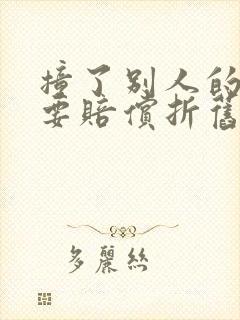 撞了别人的
要赔偿折舊
多麗絲